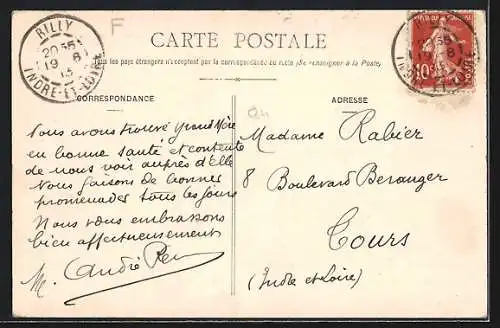 RILLY
20 35
19 - 8
13
INDRE-ET-LOIRE
F
CARTE POSTALE
Tous les pays étrangers n'acceptent pas la correspondance au recto (Se renseigner à la Poste).
CORRESPONDANCE
ADRESSE
10c
POSTES
Nous avons trouvé grand Mère
en bonne santé et contente
de nous voir auprès d'Elle
Nous faisons de bonnes
promenades tous les jours
Nous vous embrassons
bien affectueusement
M. André
Madame Rabier
8 Boulevard Beranger
Tours
(Indre et Loire)